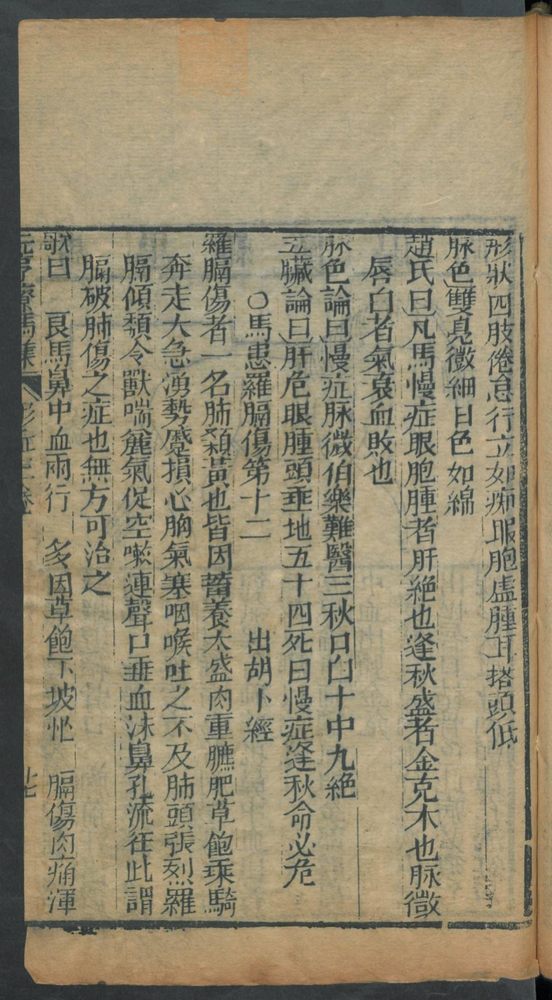 形狀四肢倦怠行立如痴眼胞虛腫耳搭頭低
脉色雙鳧微細白色如綿
趙氏曰凡馬慢症眼胞腫者肝絶也逢秋盛者金克木也脉微
唇白者氣衰血敗也
脉色論曰慢症脉微伯樂難醫三秋口白十中九絶
五臟論曰肝危眼腫頭垂地五十四死曰慢症逢秋命必危
○馬患羅膈傷第十二 出胡卜經
羅膈傷者一名肺顙黃也皆因蓄養太盛肉重膘肥草飽乘騎
奔走大急湧勢蹙損心胸氣塞咽喉吐之不及肺頭張烈羅
膈傾頽令獸喘麄氣促空嗽連聲口垂血沫鼻孔流徃此謂
膈破肺傷之症也無方可治之
歌曰 良馬鼻中血兩行 多因草飽下坡忙 膈傷肉痛渾
元亨療馬集 卷 十七